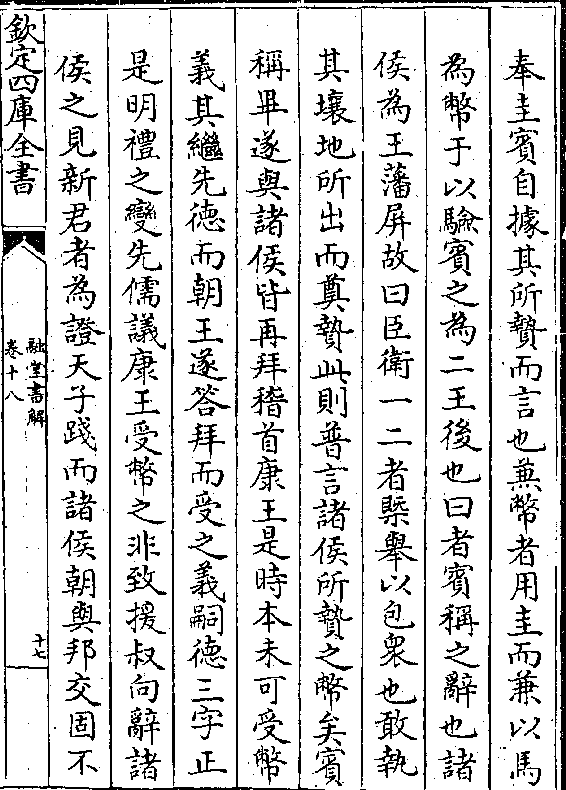 奉圭賓自據其所贄而言也兼幣者用圭而兼以馬
為幣于以驗賓之為二王後也曰者賓稱之辭也諸
侯為王藩屏故曰臣衛一二者槩舉以包衆也敢執
其壤地所出而奠贄此則普言諸侯所贄之幣矣賓
稱畢遂與諸侯皆再拜稽首康王是時本未可受幣
義其繼先徳而朝王遂答拜而受之義嗣徳三字正
是明禮之變先儒議康王受幣之非致援叔向辭諸
侯之見新君者為證天子踐而諸侯朝與邦交固不
欽定四庫全書
融堂書解
卷十八
十七